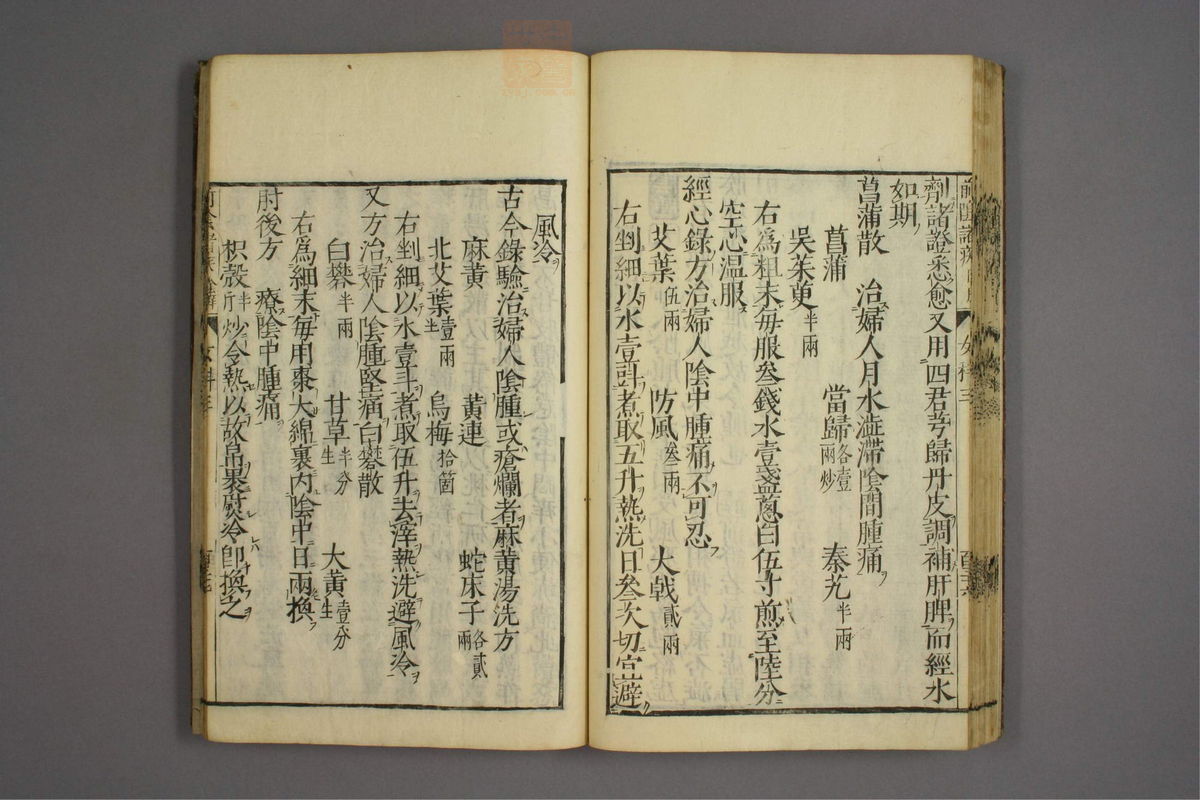 劑諸證悉愈又用四君芎歸丹皮調補肝脾而經水
如期
菖蒲散　治婦人月水澁滯陰間腫痛
菖蒲　當歸各壹兩炒　秦艽半兩
吳茱萸半兩
右爲粗末毎服叄錢水壹盞蔥白伍寸煎至陸分
空心溫服
經心錄方治婦人陰中腫痛不可忍
艾葉伍兩　防風叄兩　大戟貳兩
右剉細以水壹㪷煮取五升熱洗日叄次切宜避
風冷
古今錄驗治婦人陰腫或瘡爛者麻黄湯洗方
麻黄　黄連　蛇床子各貳兩
北艾葉壹兩　烏梅拾箇
右剉細以水壹斗煮取伍升去滓熱洗避風冷
又方治婦人陰腫堅痛白礬散
白礬半兩　甘草生半分　大黄生壹分
右爲細末毎用棗大綿裹内陰中日兩換
肘後方　療陰中腫痛
枳殼半斤炒令熱以故帛裹熨冷卽換之
女科三